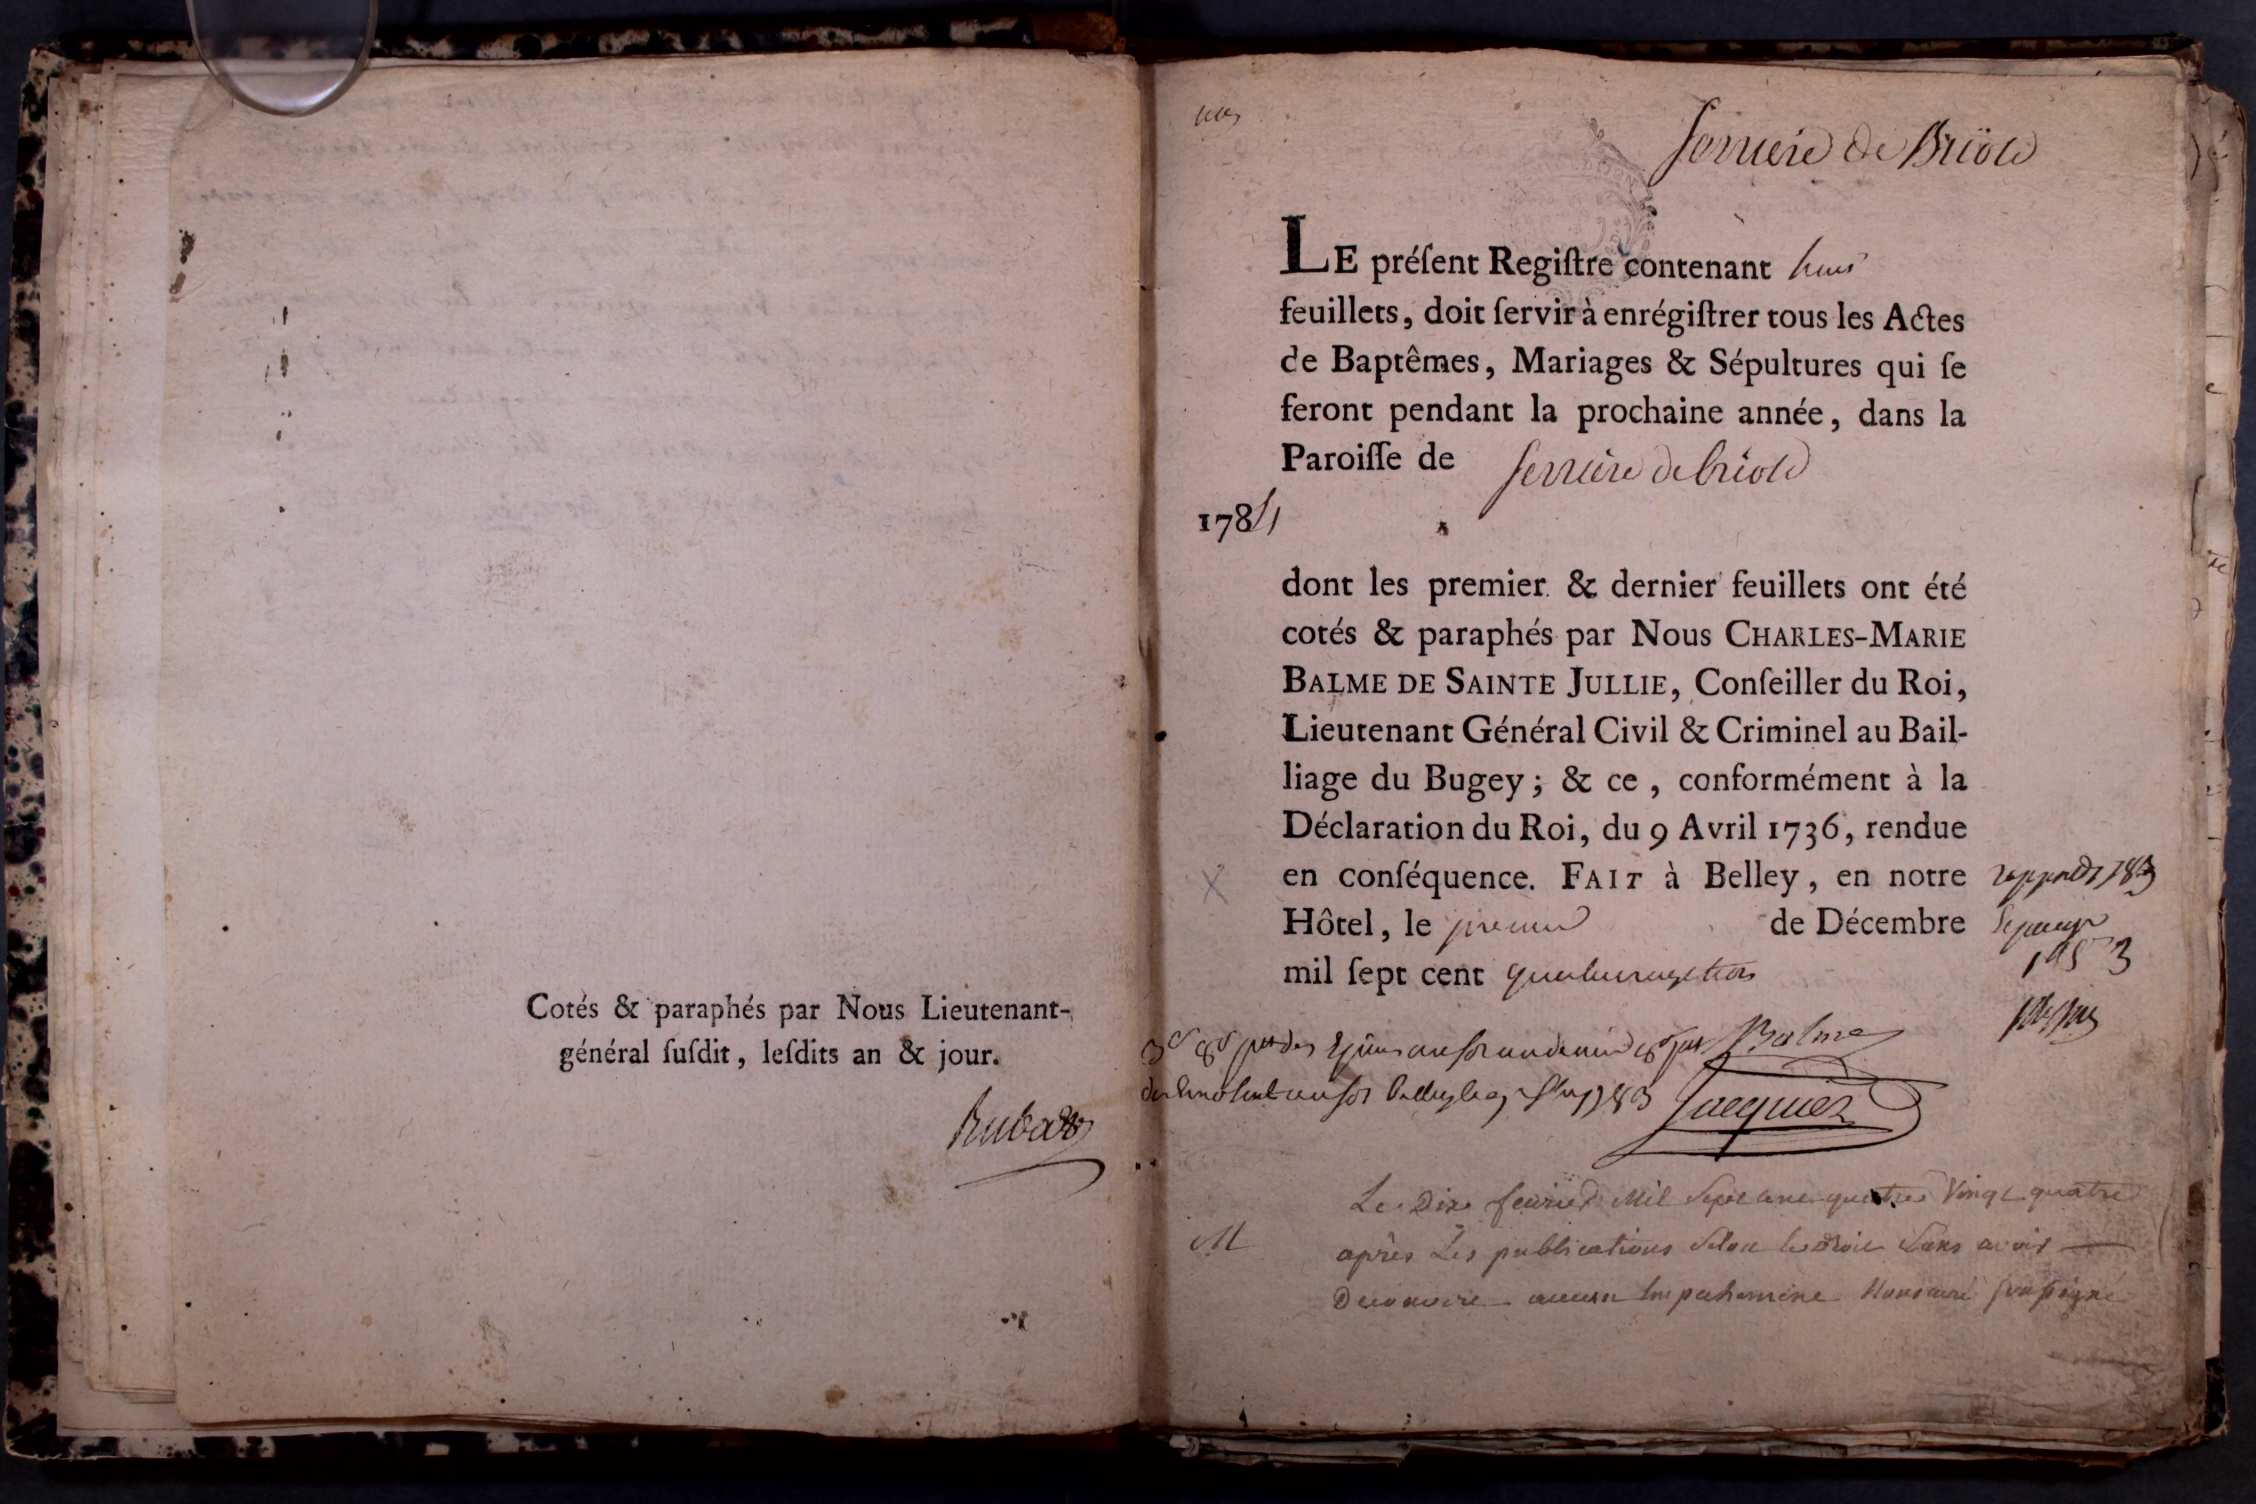 Cotés & paraphés par Nous Lieutenant-
général ſuſdit, leſdits an & jour.
Serriere de Briord
LE préſent Regiſtre contenant huit
feuillets, doit ſervir à enrégiſtrer tous les Actes
de Baptêmes, Mariages & Sépultures qui ſe
feront pendant la prochaine année, dans la
Paroiſſe de Serriere de briord
1784
dont les premier & dernier feuillets ont été
cotés & paraphés par Nous CHARLES-MARIE
BALME DE SAINTE JULLIE, Conſeiller du Roi,
Lieutenant Général Civil & Criminel au Bail-
liage du Bugey; & ce, conformément à la
Déclaration du Roi, du 9 Avril 1736, rendue
en conſéquence. FAIT à Belley, en notre
Hôtel, le premier de Décembre
mil ſept cent quatrevingt trois
Balme
Jacquier
M
Le Dix fevrier Mil Sept cent quatre Vingt quatre
après Les publications Selon le droit Sans avoir
Decouvert aucun Empechement Nous curé soussigné